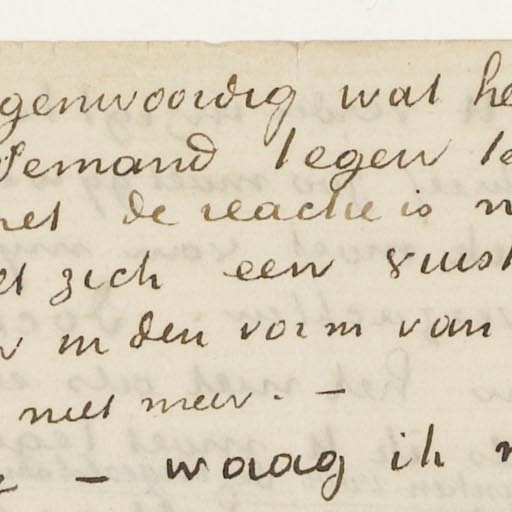 genwoordig wat he
Iemand tegen te
het de reactie is n
et zich een rust
in den vorm van
niet meer. –
– waag ik